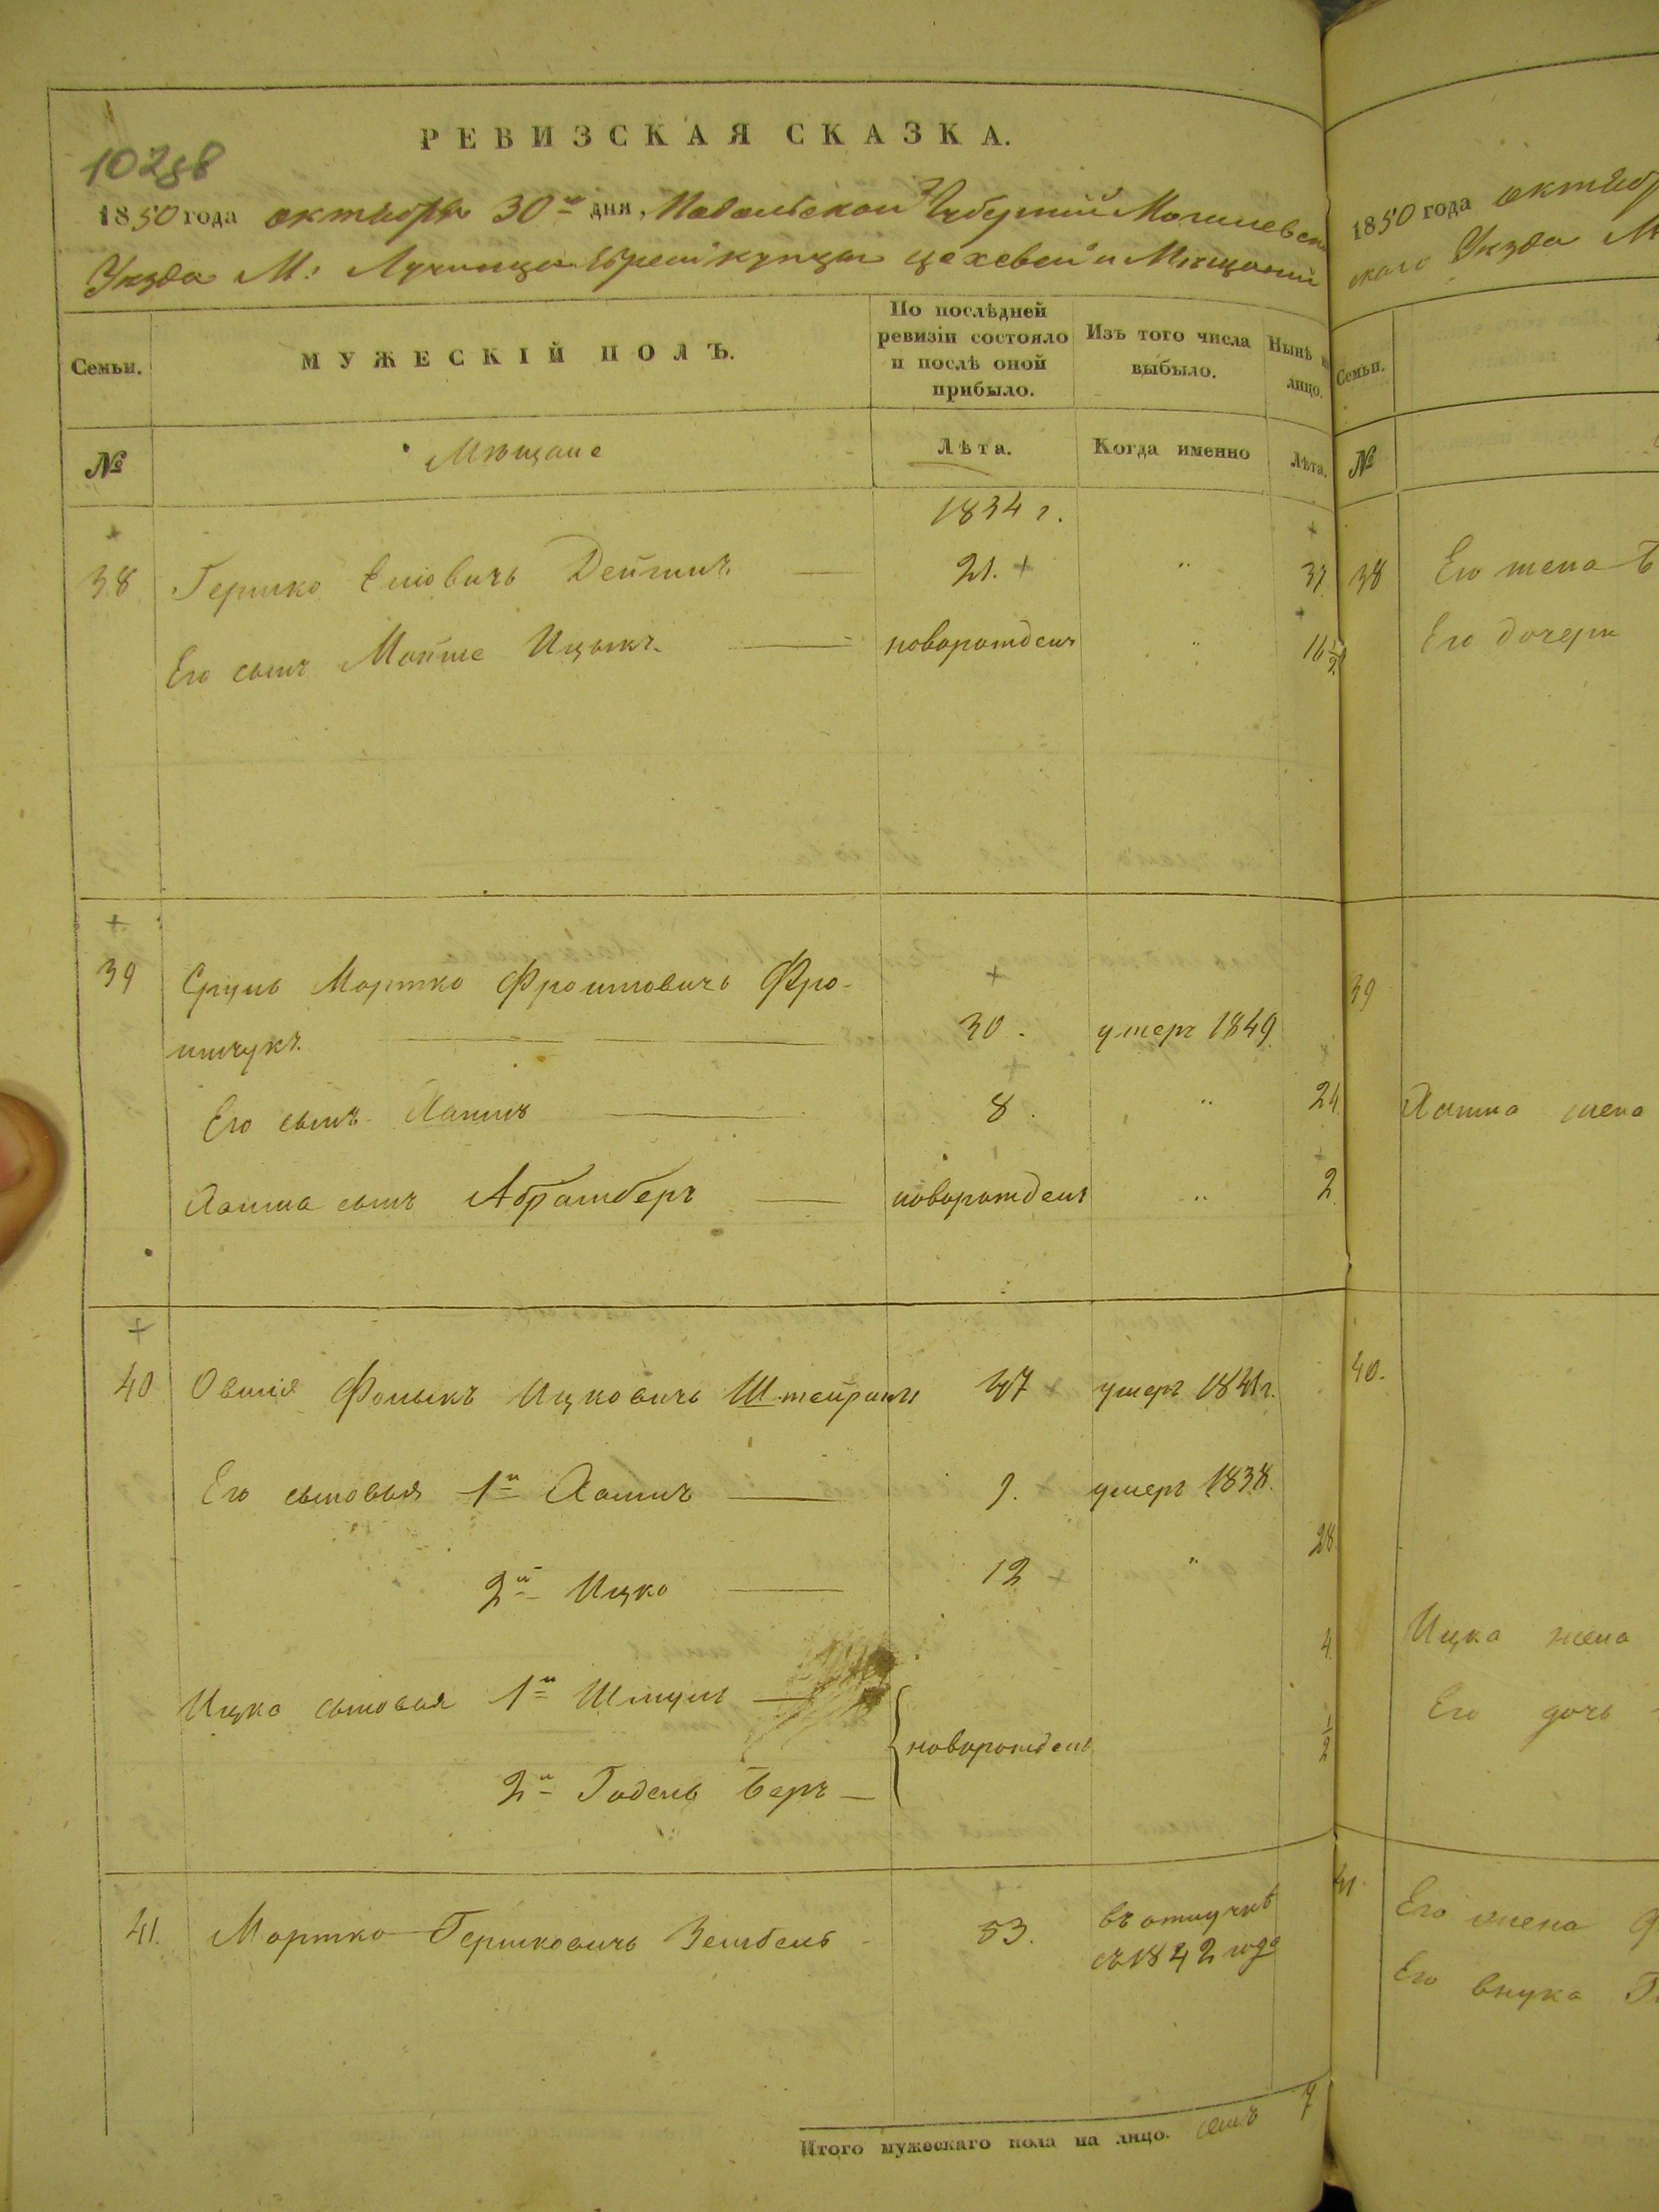 РЕВИЗСКАЯ СКАЗКА.
1850 года октября 30го дня, Подольской Губернии Могилевска
Уезда М: Лучинца Еврей купцы цеховей и Мещаний
Семьи.
МУЖЕСКІЙ ПОЛЪ.
По послѣдней ревизіи состояло и послѣ оной прибыло.
Изъ того числа выбыло.
Нынѣ на лицо.
№
Мѣщане
Лѣта.
Когда именно
Лѣта.
1834 г.
38 Гершко 21. " 37
Его сынъ Мойше Ицыкъ новорожденъ " 16 1/2
39 Сруль Мортко Фроимовичъ Фро-
имчукъ 30. умеръ 1849
Его сынъ Хаимъ 8. " 24
Хаима сынъ Абрамберъ новорожденъ " 2
40 Овшія Фолыкъ Ицковичъ 47 умеръ 1841 г.
Его сыновья 1й Хаимъ 9. умеръ 1838.
2й Ицко 12 " 28
Ицка сыновья 1й Шмуль новорожденъ 4
2й Годель Беръ 1/2
41. Мортко Гершковичъ 53. въ отлучкѣ
съ 1842 года
Итого мужескаго пола на лицо. семь 7
1850 года октябр
скаго Уезда М
Семьи.
№
38 Его жена
Его дочери
39
Хаима жена
40.
Ицка жена
Его дочь
41.
Его жена
Его внука